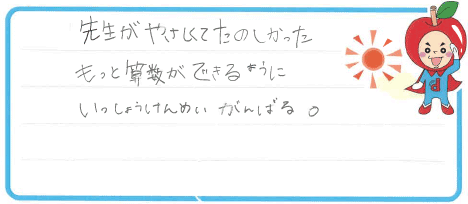 先生がやさしくてたのしかった
もっと算数ができるように
いっしょうけんめい がんばる。
d